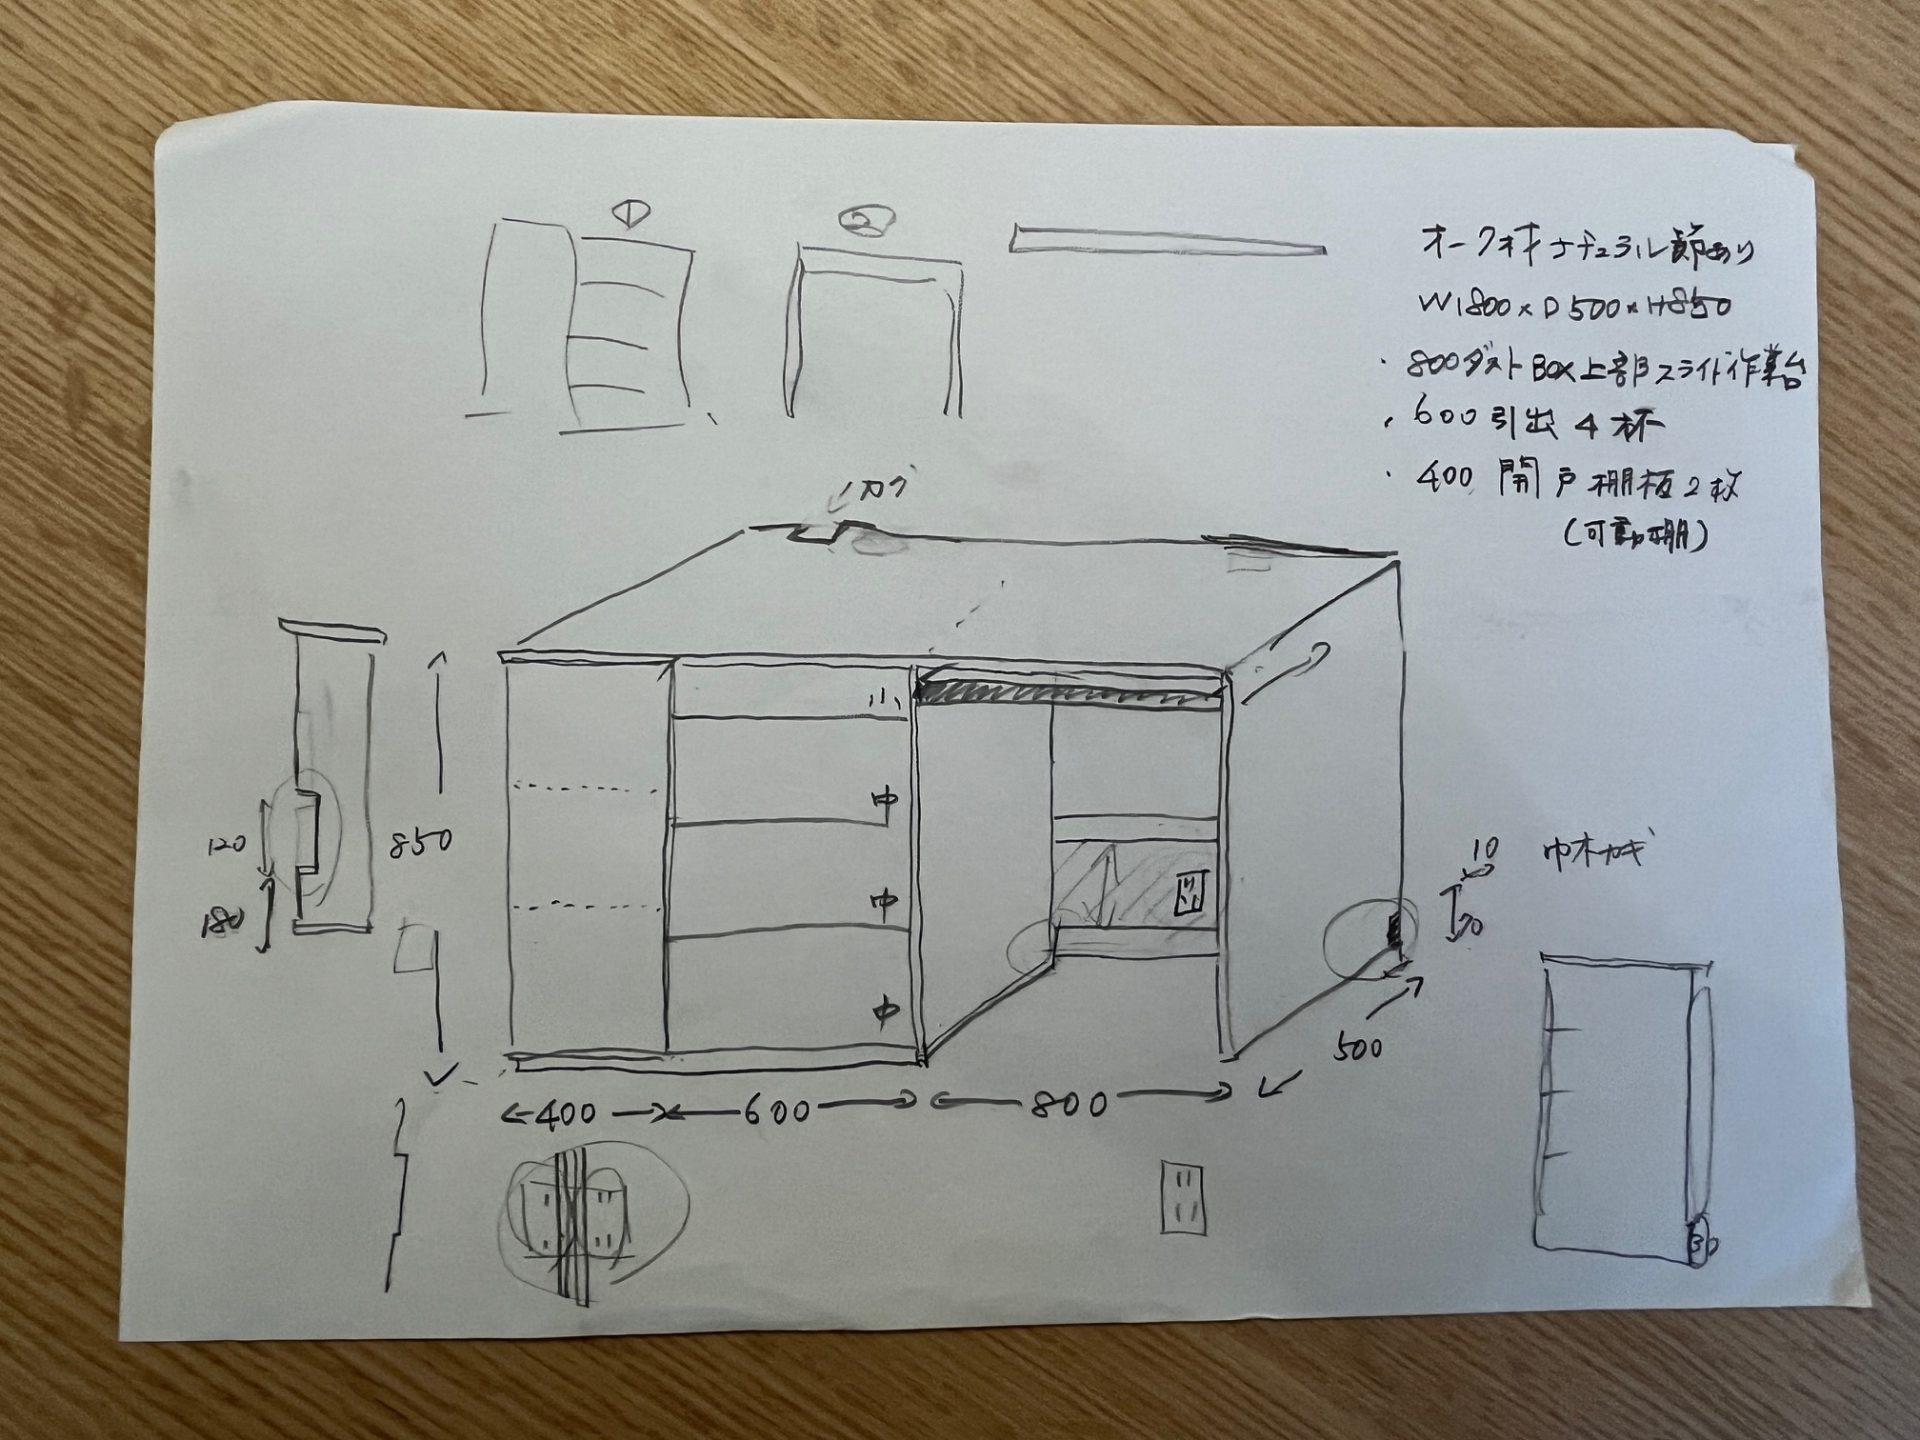 ①
②
オーク材ナチュラル節あり
W1800×D500×H850
・800ダストBOX上部スライド作業台
・600引出4杯
・400 開戸棚板2枚
(可動棚)
小
中
120
850
10
巾木カギ
中
180
70
中
500
400
600
800